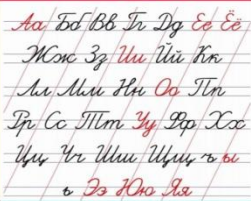 Аа Бб Вв Гг Дд Ее Ёё
Жж Зз Ии Йй Кк
Лл Мм Нн Оо Пп
Рр Сс Тт Уу Фф Хх
Цц Чч Шш Щщ ъ ы
ь Ээ Юю Яя